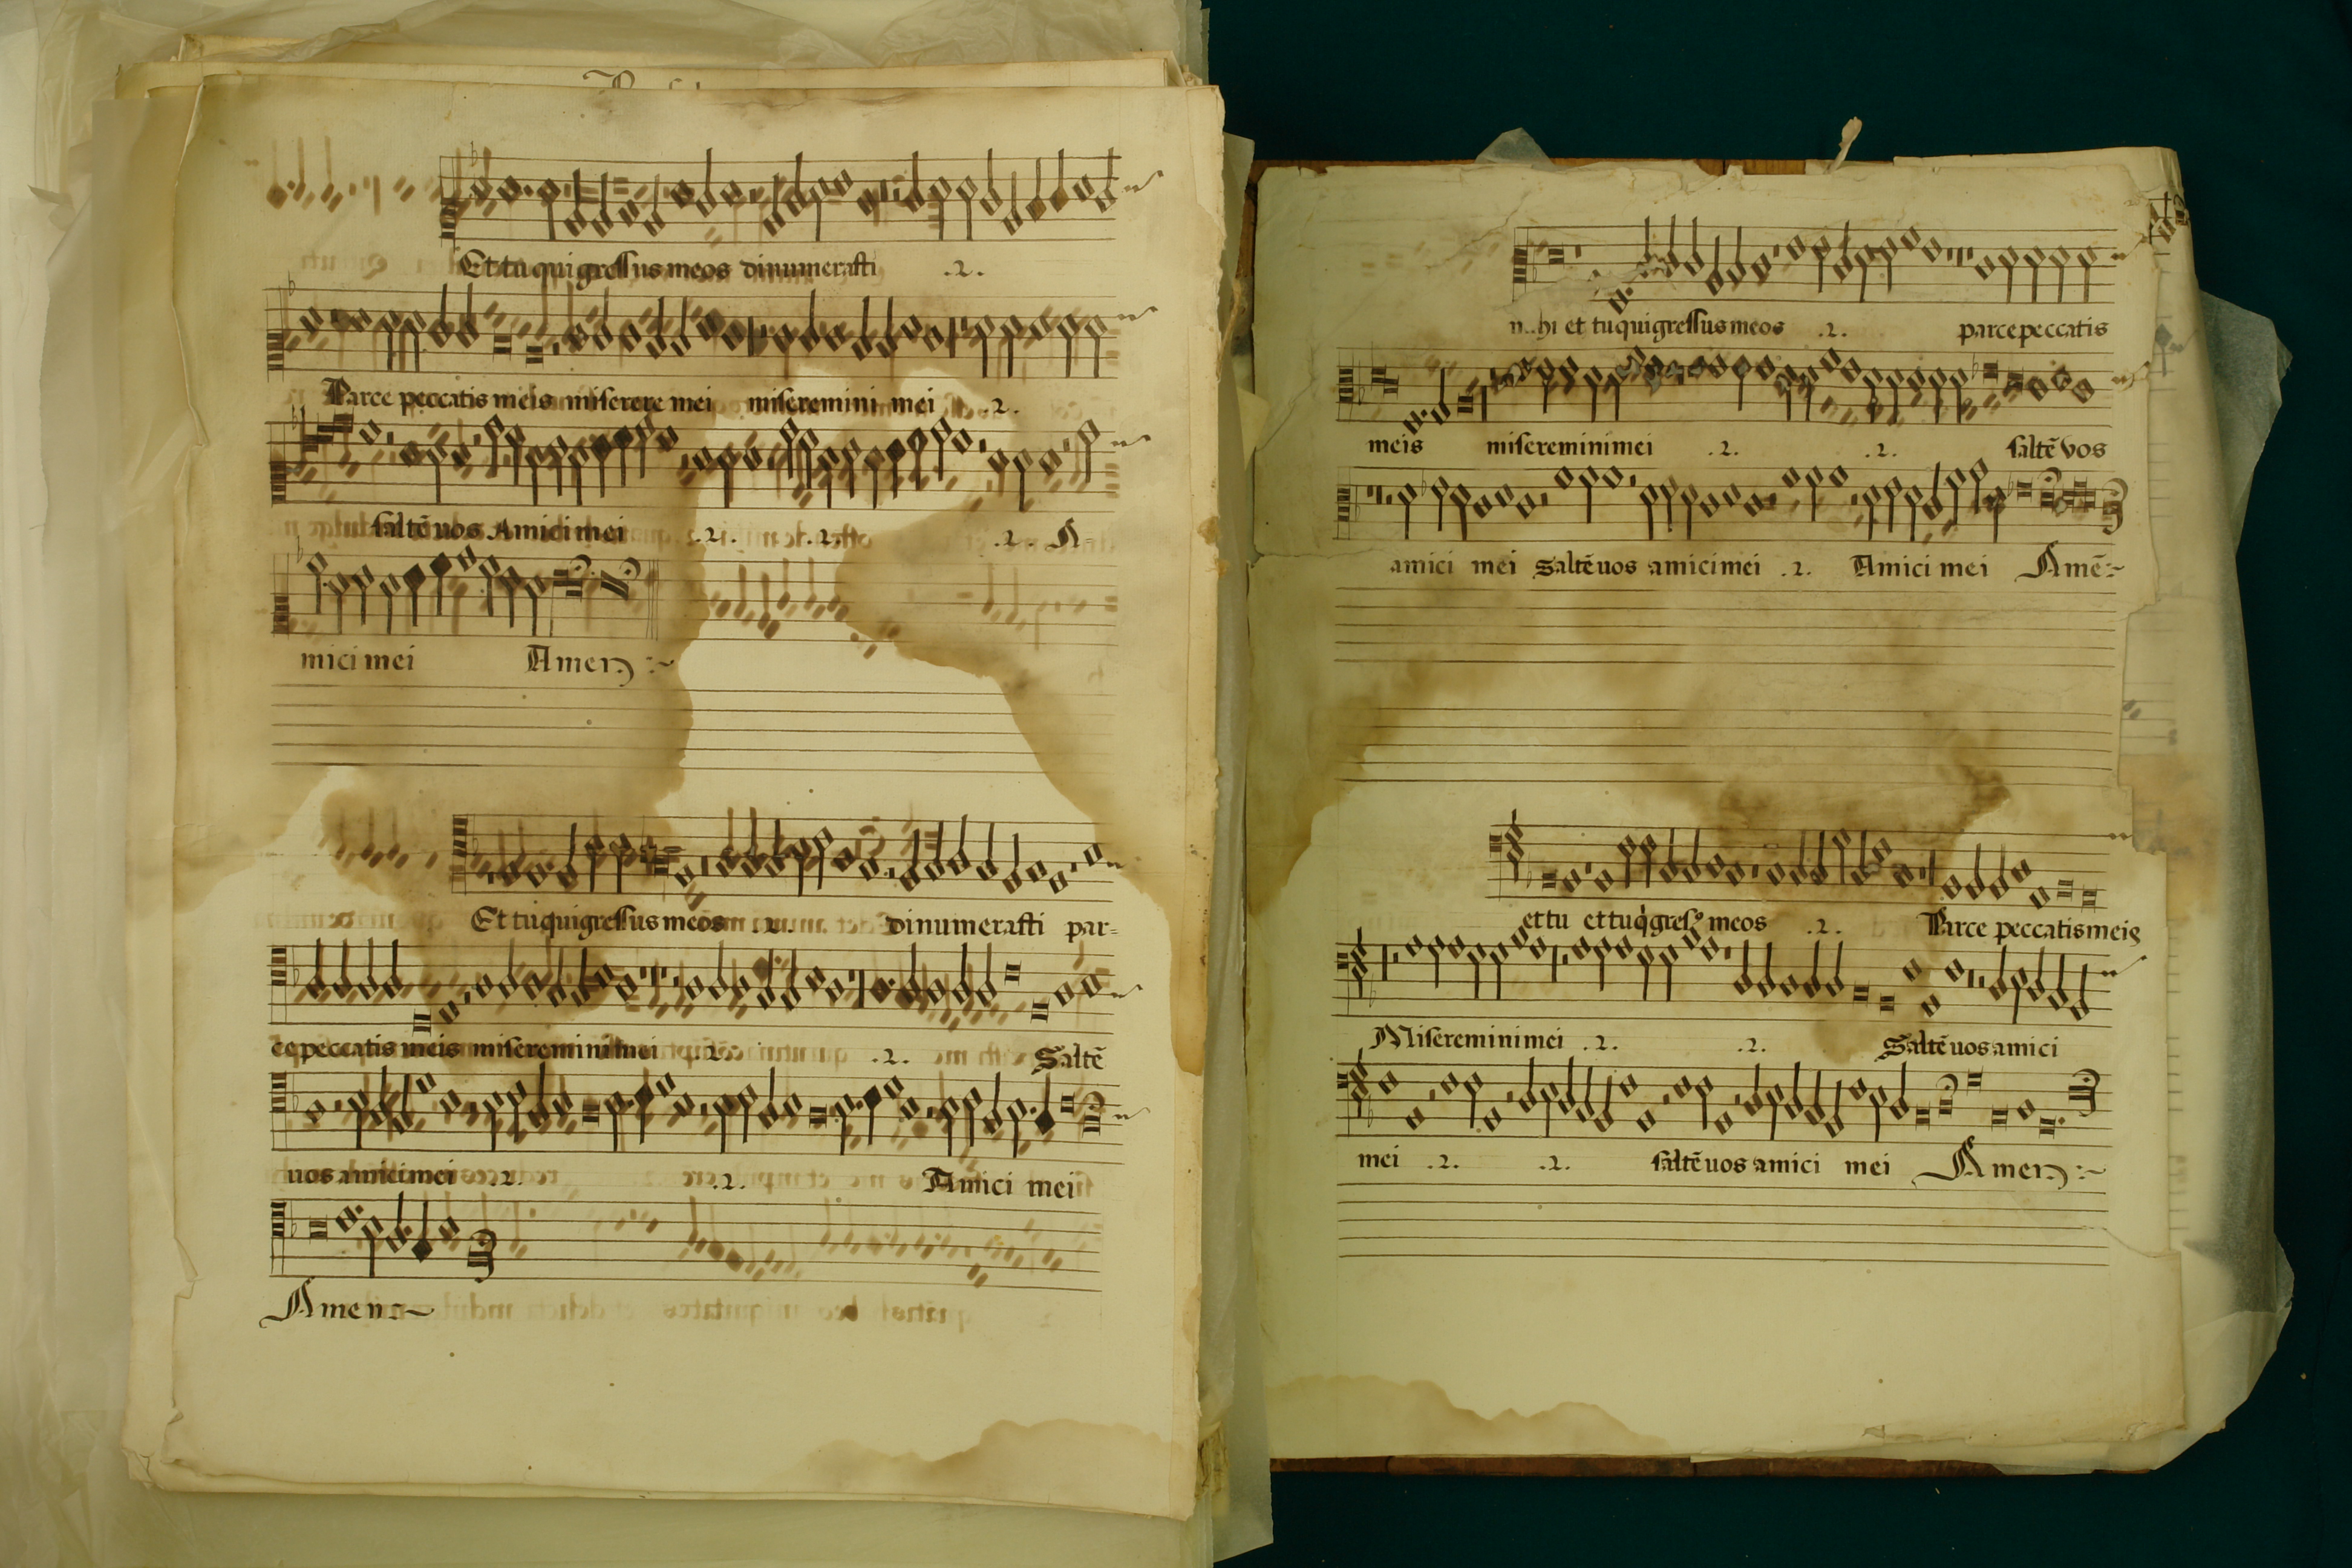 Et tu qui gressus meos dinumerasti .2.
Parce peccatis meis miserere mei miseremini mei .2.
saltē uos Amici mei .2. .2. .2. A-
mici mei Amen :~
Et tu qui gressus meos .2. dinumerasti par=
ce peccatis meis miseremini mei .2. .2. Saltē
uos amici mei .2. .2. Amici mei
Amen :~
et tu qui gressus meos .2. parce peccatis
meis miseremini mei .2. .2. saltē vos
amici mei Saltē uos amici mei .2. Amici mei Amē :~
et tu et tu meos .2. Parce peccatis meis
Miseremini mei .2. .2. Saltē uos amici
mei .2. .2. saltē uos amici mei Amen :~